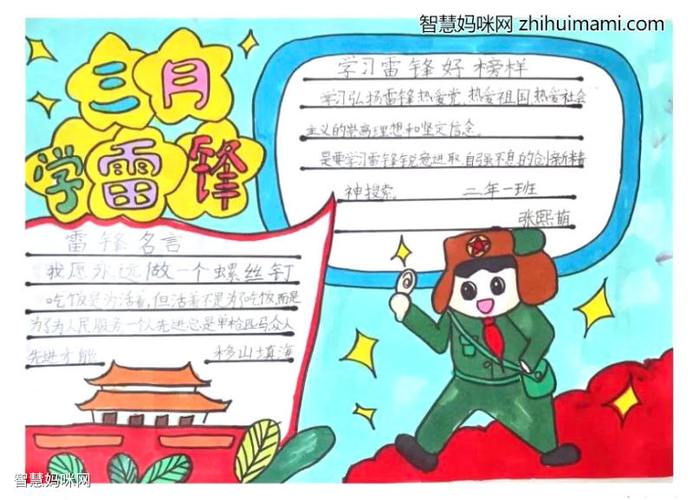 智慧妈咪网 zhihuimami.com
三月
学雷锋
学习雷锋好榜样
学习弘扬雷锋热爱党,热爱祖国,热爱社会
主义的崇高理想和坚定信念。
是要学习雷锋锐意进取,自强不息的创新精
神搜索。 二年一班
张熙萌
雷锋名言
我愿永远做一个螺丝钉
吃饭是为活着,但活着不是为了吃饭,而是
为了为人民服务一个人先进总是单枪匹马众人
先进才能 移山填海
智慧妈咪网